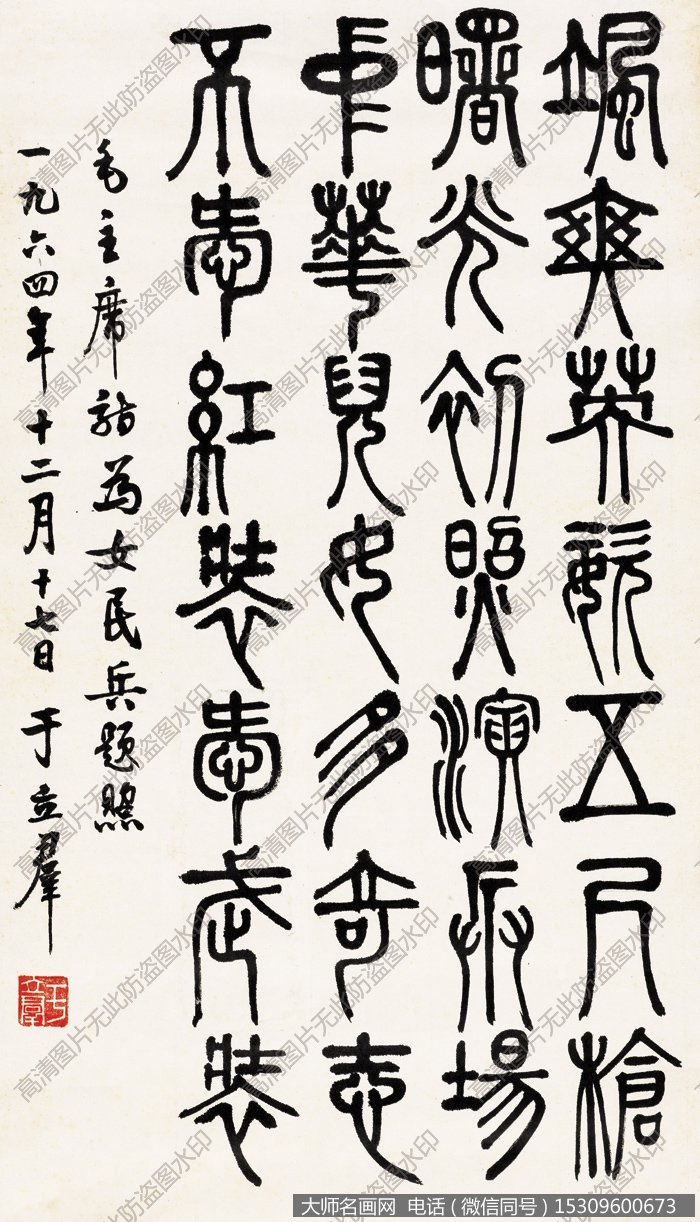 颯爽英姿五尺槍
曙光初照演兵場
中華兒女多奇志
不愛紅裝愛武裝
毛主席詩為女民兵題照
一九六四年十二月十七日 于立羣
于立羣
高清图片无此防盗图水印
大师名画网 电话（微信同号）15309600673